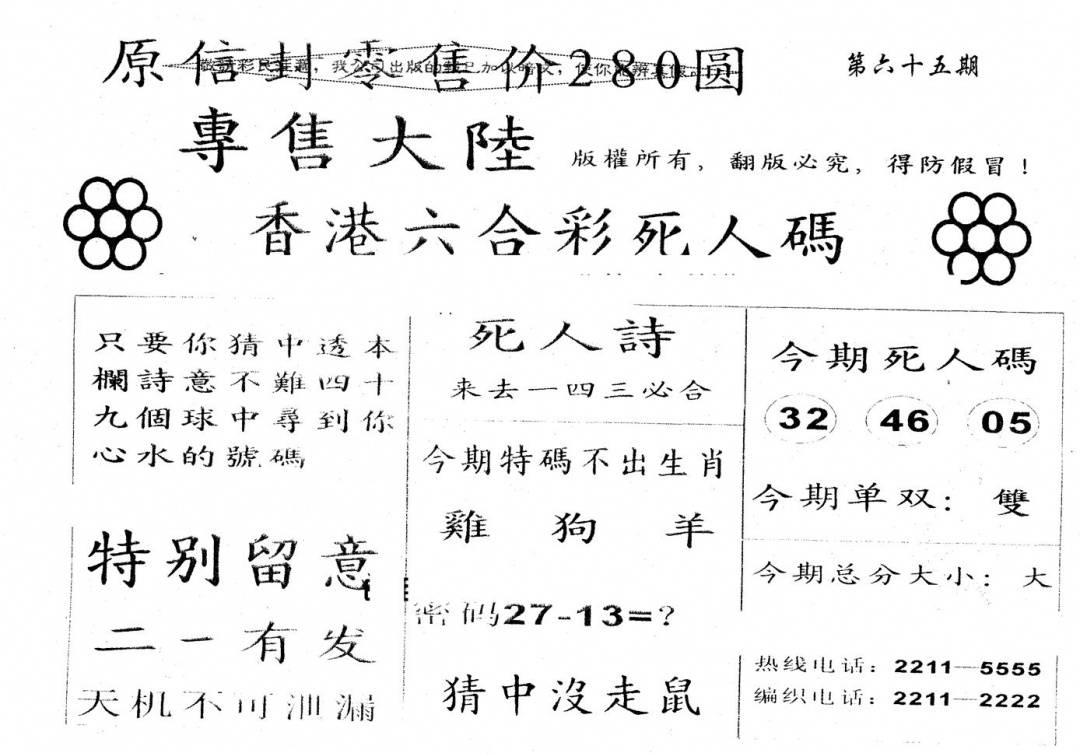 原信封零售价280圆
敬請彩民注意，我公司出版的
第六十五期
專售大陸
版權所有，翻版必究，得防假冒！
香港六合彩死人碼
只要你猜中透本
欄詩意不難四十
九個球中尋到你
心水的號碼
特别留意
二一有发
天机不可泄漏
死人詩
来去一四三必合
今期特碼不出生肖
雞 狗 羊
密码27-13=?
猜中沒走鼠
今期死人碼
32 46 05
今期单双：雙
今期总分大小：大
热线电话：2211—5555
编织电话：2211—2222